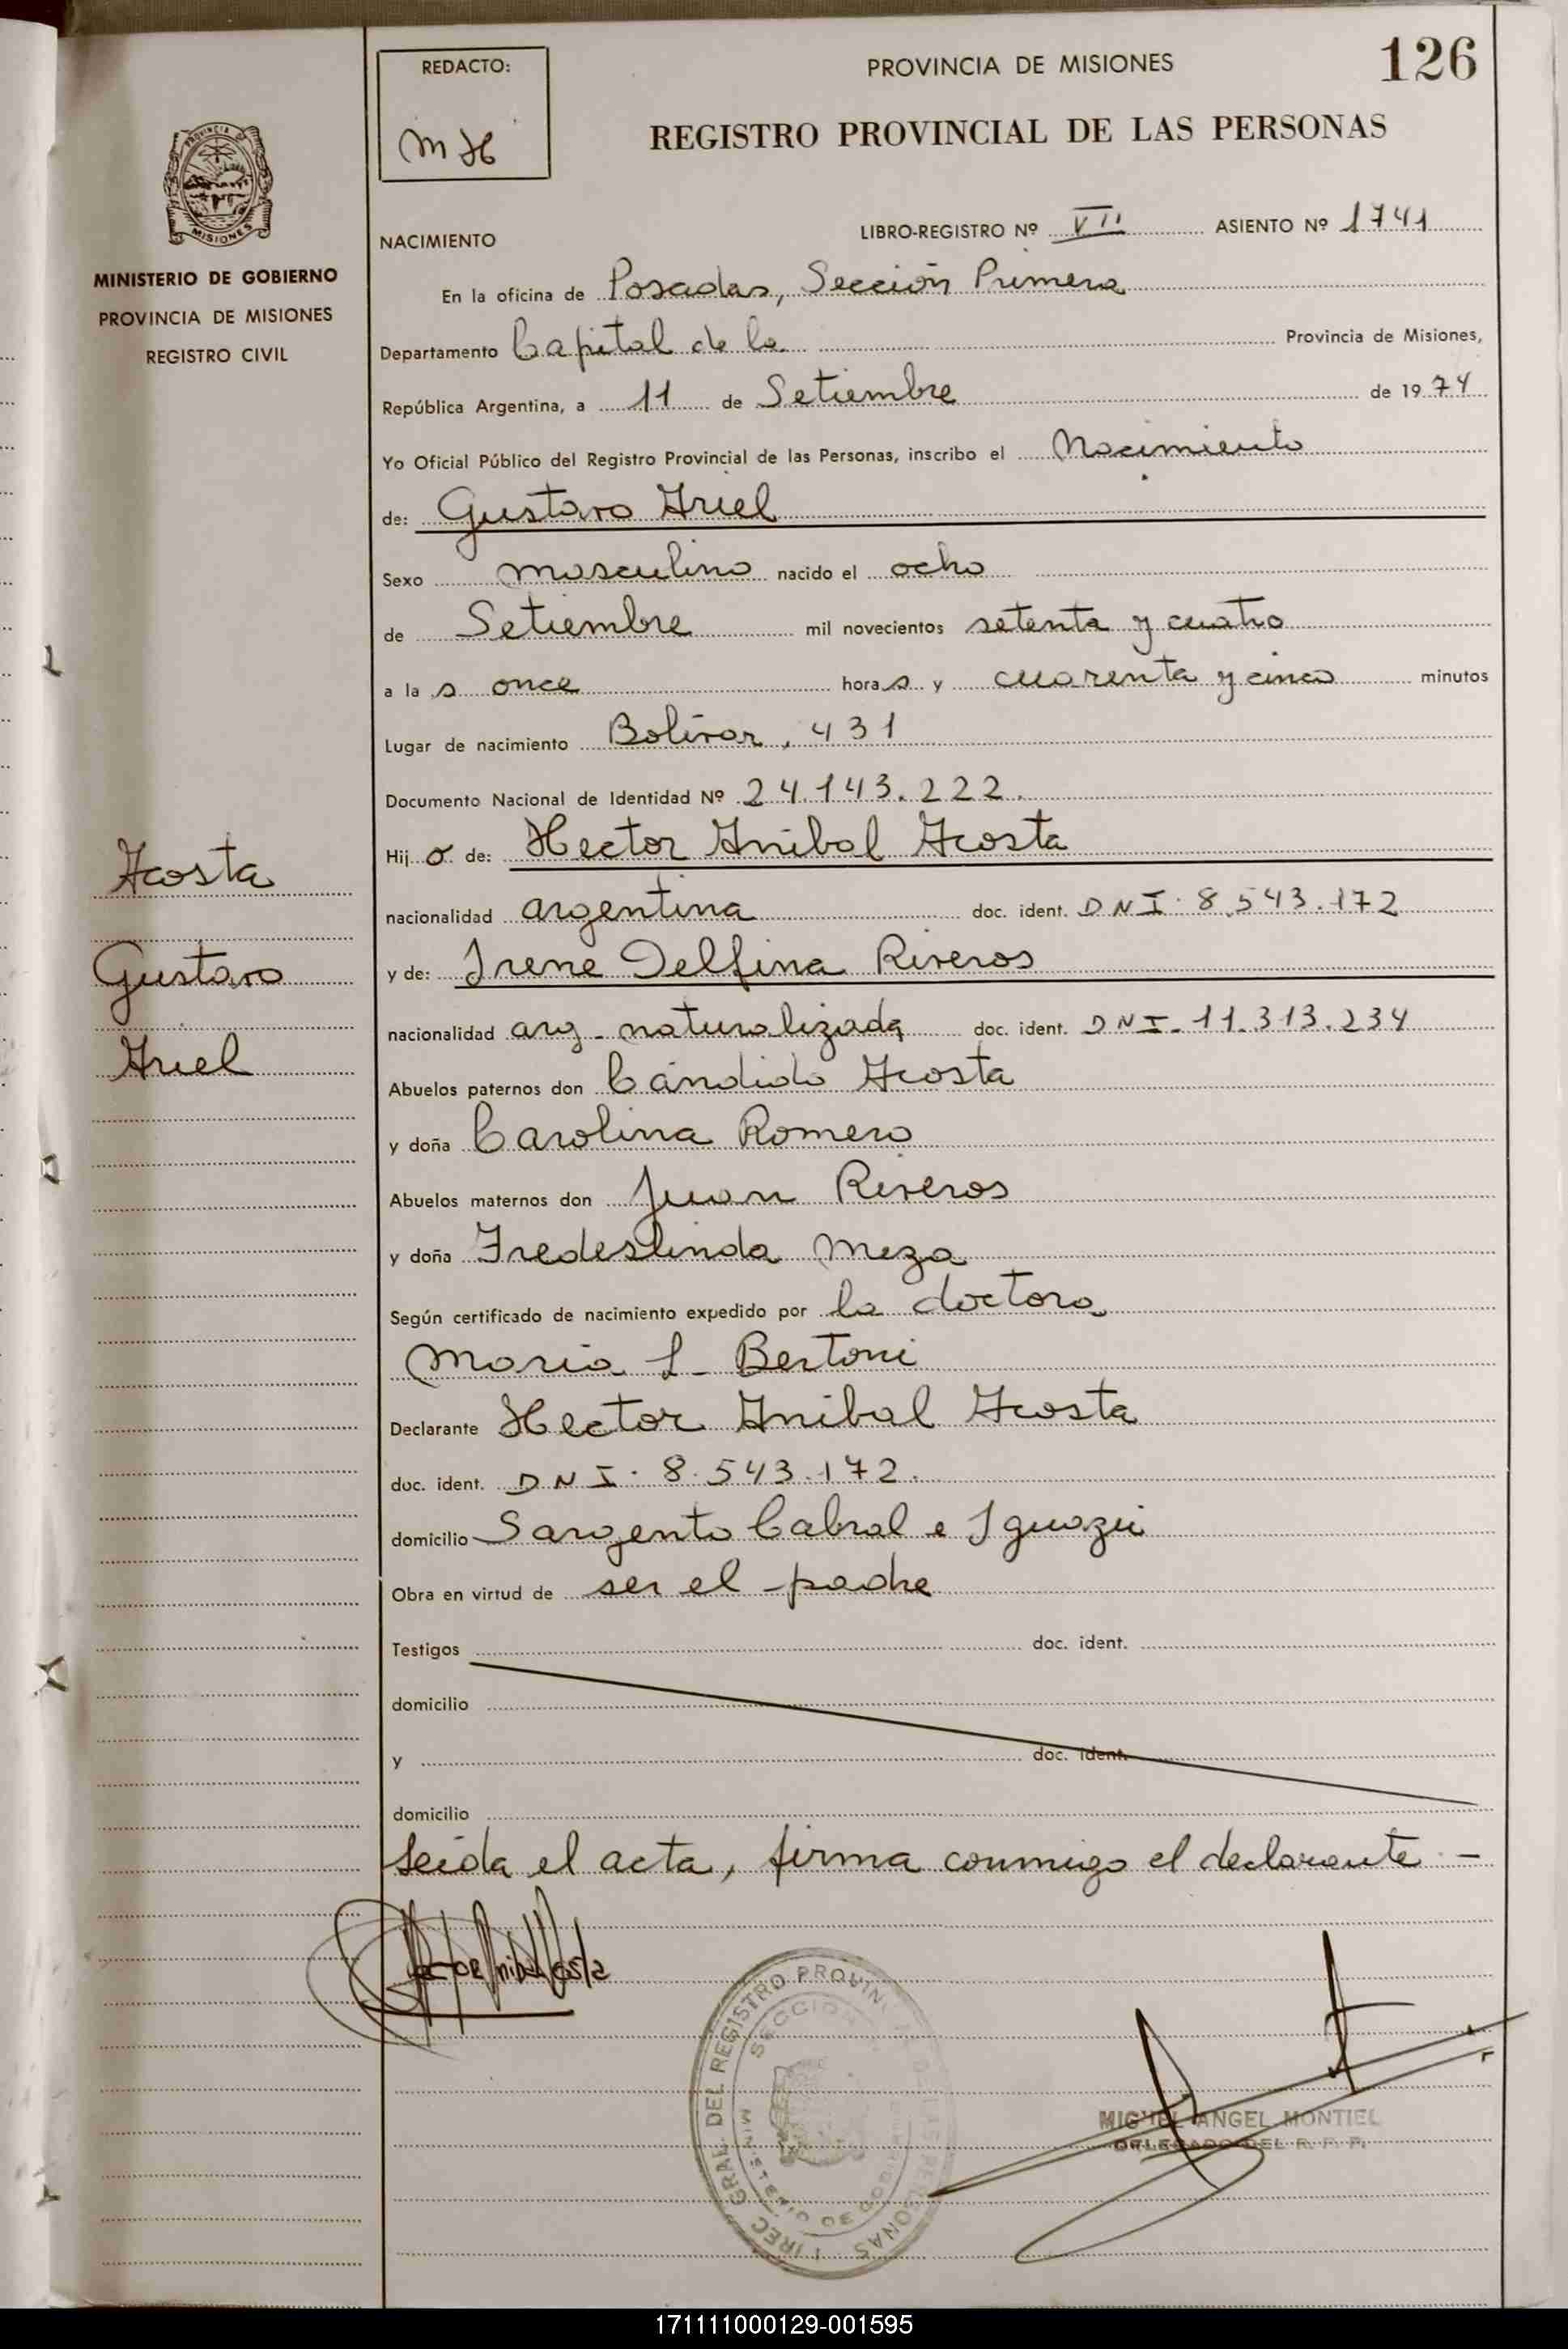 126
REDACTO:
MH
PROVINCIA DE MISIONES
REGISTRO PROVINCIAL DE LAS PERSONAS
PROVINCIA DE
MISIONES
MINISTERIO DE GOBIERNO
PROVINCIA DE MISIONES
REGISTRO CIVIL
NACIMIENTO LIBRO-REGISTRO Nº VII ASIENTO Nº 1741
En la oficina de Posadas, Sección Primera
Departamento Capital de la Provincia de Misiones,
República Argentina, a 11 de Setiembre de 1974
Yo Oficial Público del Registro Provincial de las Personas, inscribo el Nacimiento
de: Gustavo Ariel
Sexo masculino nacido el ocho
de Setiembre mil novecientos setenta y cuatro
a la s once hora s y cuarenta y cinco minutos
Lugar de nacimiento Bolívar, 431
Documento Nacional de Identidad Nº 24.143.222.
Hij o de: Hector Anibal Acosta
nacionalidad argentina doc. ident. DNI. 8.543.172
y de: Irene Delfina Riveros
nacionalidad arg-naturalizada doc. ident. DNI-11.313.234
Abuelos paternos don Cándido Acosta
y doña Carolina Romero
Abuelos maternos don Juan Riveros
y doña Fredeslinda Meza
Según certificado de nacimiento expedido por la doctora
Maria L- Bertoni
Declarante Hector Anibal Acosta
doc. ident. DNI. 8.543.172.
domicilio Sargento Cabral e Iguazú
Obra en virtud de ser el padre
Testigos doc. ident.
domicilio
y doc. ident.
domicilio
Leída el acta, firma conmigo el declarante.-
Acosta
Gustavo
Ariel
Hector Anibal Acosta
DIREC. GRAL. DEL REGISTRO PROVINCIAL DE LAS PERSONAS
SECCION
MINISTERIO DE GOBIERNO
MIGUEL ANGEL MONTIEL
DELEGADO DEL R. P. P.
171111000129-001595